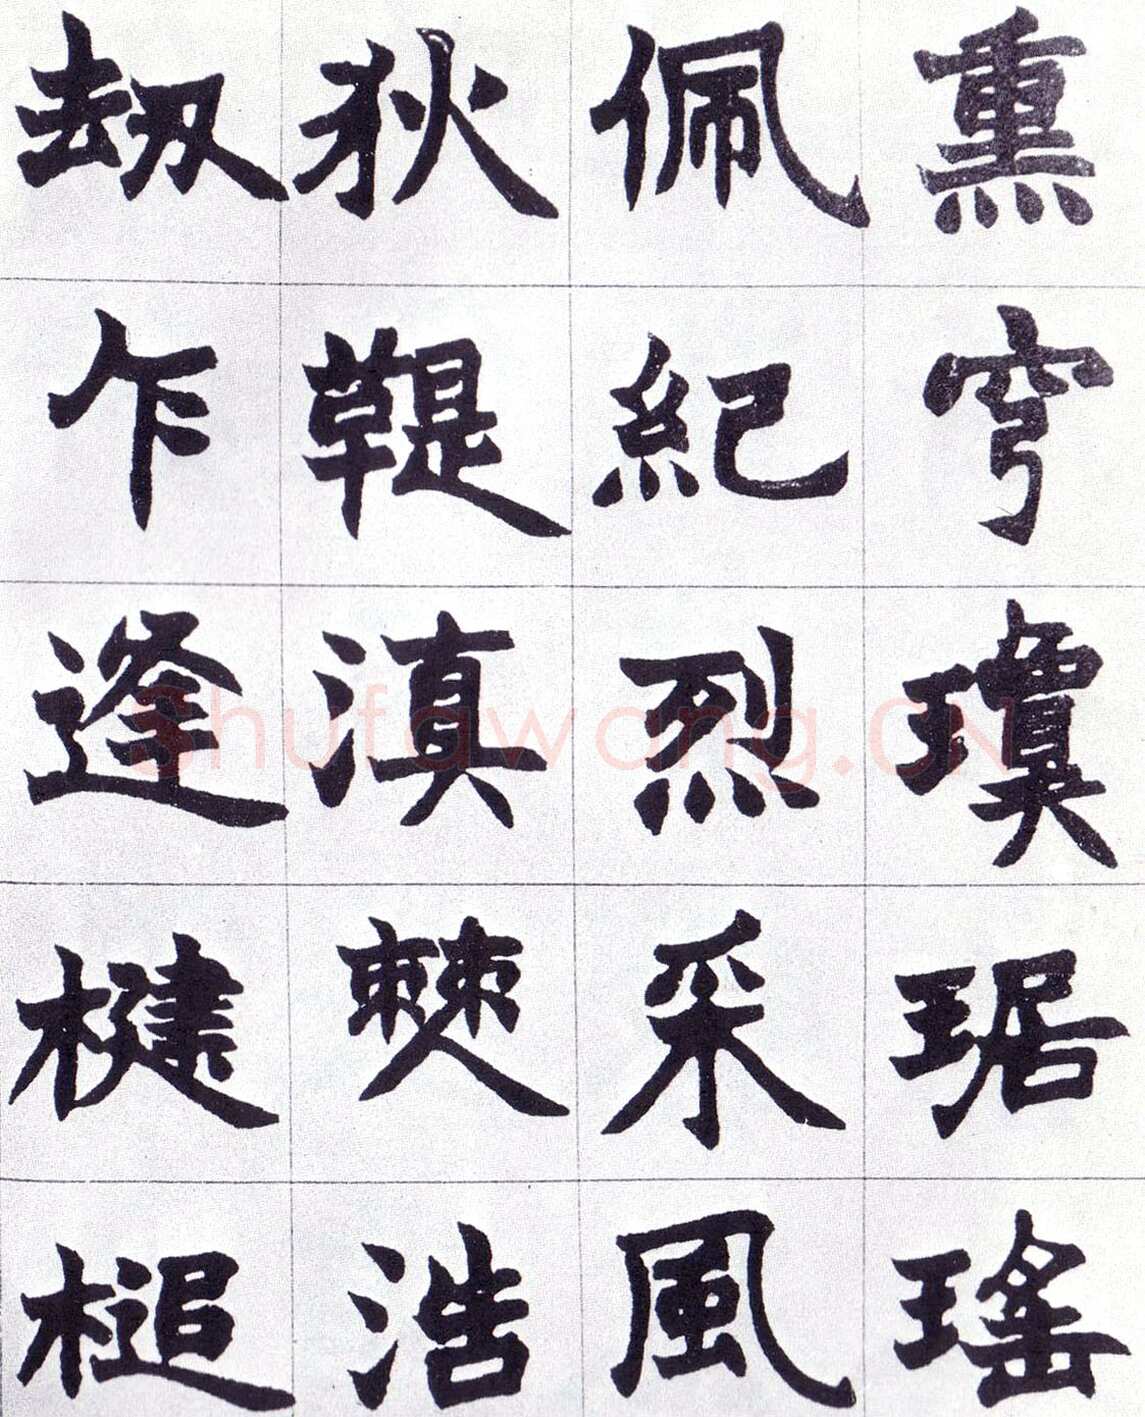 熏穹瓊琚瑤
佩紀烈采風
狄鞮滇僰浩
劫乍逢楗槌
Shufawang.CN